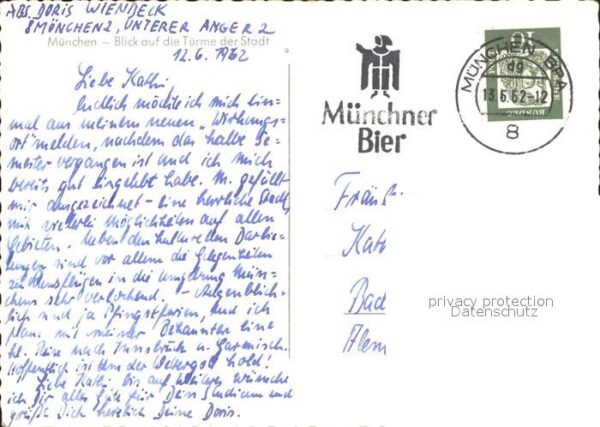 ABS. DORIS WIENDECK
8 MÜNCHEN 2, UNTERER ANGER 2
München – Blick auf die Türme der Stadt
12.6.1962
Liebe Kathi!
Endlich möchte ich mich ein-
mal aus meinem neuen „Wirkungs-
ort melden, nachdem das halbe Se-
mester vergangen ist und ich mich
bereits gut eingelebt habe. M. gefällt
mir ausgezeichnet – eine herrliche Stadt,
mit vielerlei Möglichkeiten auf allen
Gebieten. Neben den kulturellen Darbie-
tungen sind vor allem die Gelegenheiten
zu Ausflügen in die Umgebung Mün-
chens sehr verlockend. – Augenblick-
lich sind ja Pfingstferien, und ich
plane mit meiner Bekannten eine
kl. Reise nach Innsbruck u. Garmisch.
Hoffentlich ist dem der Wettergott hold!
Liebe Kathi, bis auf weiteres wünsche
ich Dir alles Gute für Dein Studium und
grüße Dich herzlich Deine Doris.
Münchner
Bier
MÜNCHEN BPA
13.6.62-12
8
Fräul.
Kat
Bad
privacy protection
Datenschutz